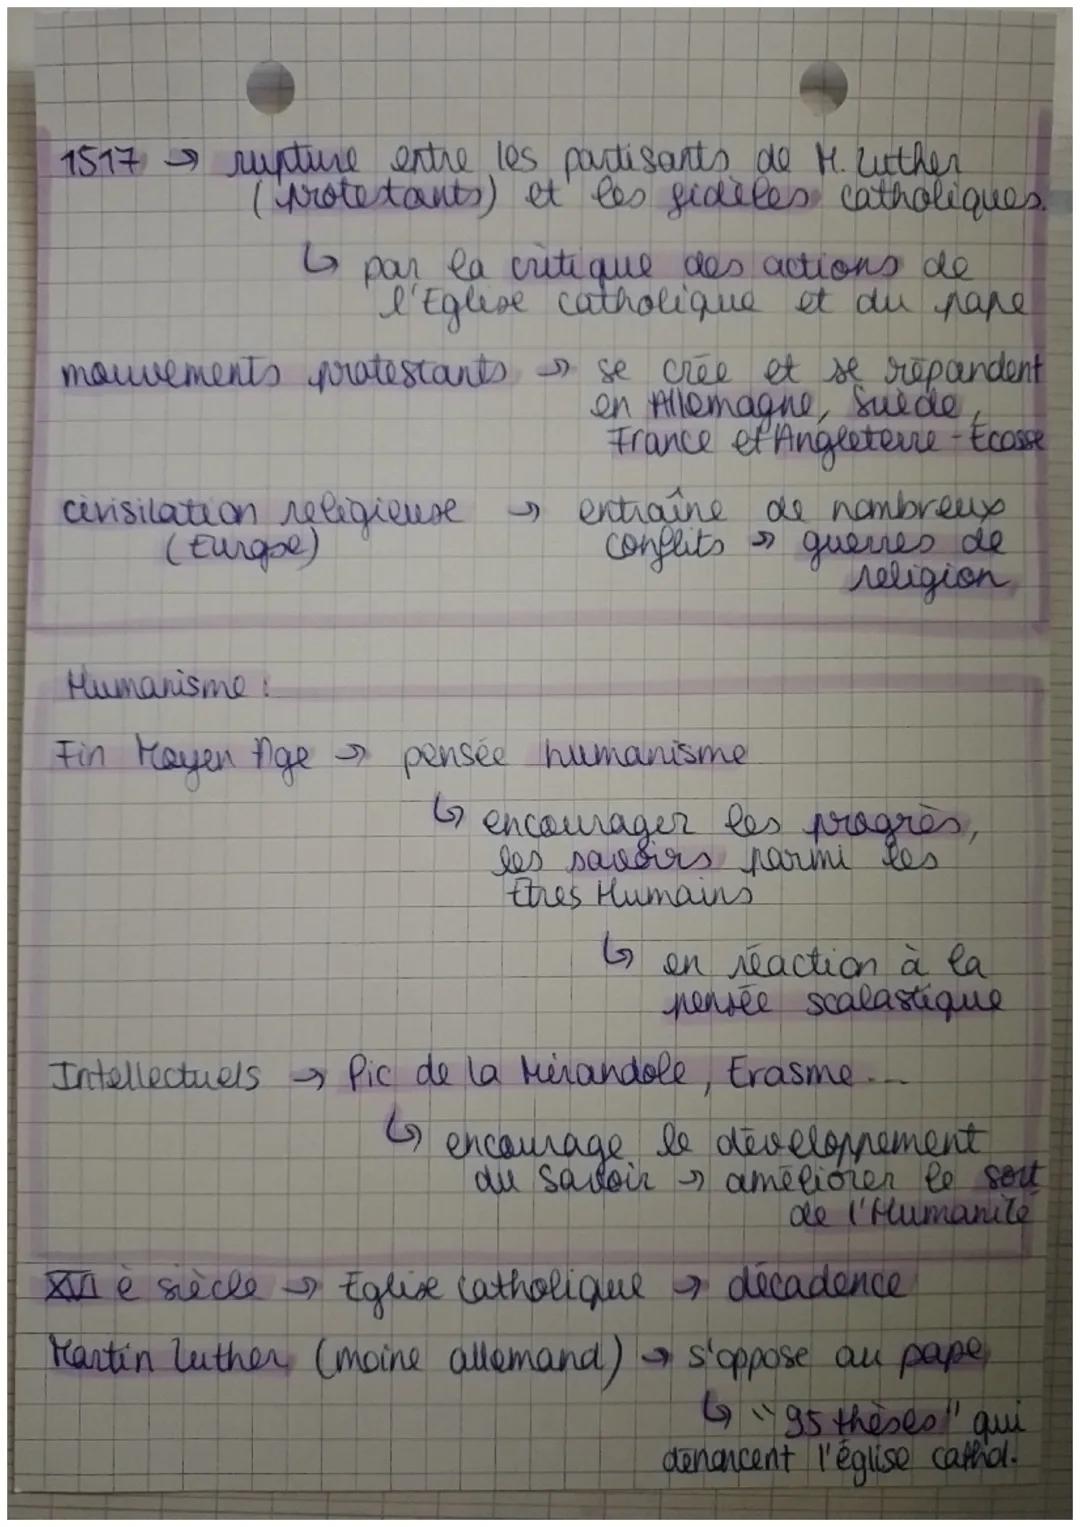 1517 → rupture entre les partisants de M. Luther
(protestants) et les fidèles catholiques.
↳ par la critique des actions de
l'Eglise catholique et du pape
mouvements protestants → se crée et se répandent
en Allemagne, Suède,
France et Angleterre - Ecosse
civisilation religieuse → entraîne de nombreux
(Europe) conflits → guerres de
religion
Humanisme :
Fin Moyen Age → pensée humanisme
↳ encourager les progrès,
les savoirs parmi les
Etres Humains
↳ en réaction à la
pensée scolastique
Intellectuels → Pic de la Mirandole, Erasme...
↳ encourage le développement
du savoir → améliorer le sort
de l'Humanité
XVI è siècle → Eglise Catholique → décadence
Martin Luther (moine allemand) → s'oppose au pape
↳ "95 thèses" qui
dénoncent l'église cathol.